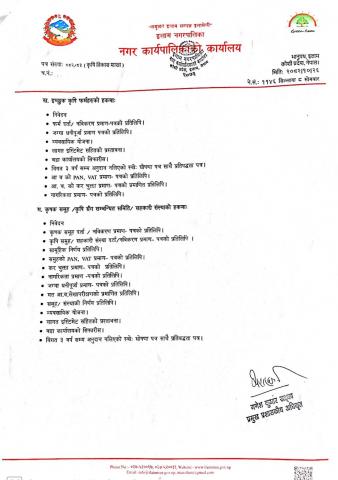 "समृद्ध इलाम सबल इलामेली"
इलाम नगरपालिका
नगर कार्यपालिकाको कार्यालय
पत्र संख्याः ०८२/८३ (कृषि विकास शाखा)
च.नं.:
भानुपथ, इलाम
कोशी प्रदेश, नेपाल।
मितिः २०८२/१०/२६
ने.सं.: ११४६ सिल्लागा ८ सोमबार
ख. इच्छुक कृषि फर्महरुको हकमाः
• निवेदन
• फर्म दर्ता/ नविकरण प्रमाण-पत्रको प्रतिलिपि।
• जग्गा धनीपूर्जा प्रमाण पत्रको प्रतिलिपि।
• व्यवसायिक योजना।
• लागत इस्टिमेट सहितको प्रस्तावना।
• वडा कार्यालयको सिफारिस।
• विगत ३ वर्ष सम्म अनुदान नलिएको स्वः घोषणा पत्र साथै प्रतिवद्धता पत्र।
• आ व को PAN, VAT प्रमाण- पत्रको प्रतिलिपि।
• आ. व. को कर चुक्ता प्रमाण- पत्रको प्रमाणित प्रतिलिपि।
• नागरिकता प्रमाण- पत्रको प्रतिलिपि।
ग. कृषक समूह /कृषि सँग सम्बन्धित समिति/ सहकारी संस्थाको हकमाः
• निवेदन
• कृषक समूह दर्ता / नविकरण प्रमाण- पत्रको प्रतिलिपि।
• कृषि समूह/ सहकारी संस्था दर्ता/नविकरण प्रमाण- पत्रको प्रतिलिपि ।
• सामूहिक निर्णय प्रतिलिपि।
• समूहको PAN, VAT प्रमाण- पत्रको प्रतिलिपि।
• कर चुक्ता प्रमाण- पत्रको प्रतिलिपि।
• नागरिकता प्रमाण -पत्रको प्रतिलिपि।
• जग्गा धनीपूर्जा प्रमाण- पत्रको प्रतिलिपि।
• गत आ.व.लेखापरीक्षणको प्रमाणित प्रतिलिपि।
• समूह/ संस्थाको निर्णय प्रतिलिपि।
• व्यवसायिक योजना।
• लागत इस्टिमेट सहितको प्रस्तावना।
• वडा कार्यालयको सिफारिस।
• विगत ३ वर्ष सम्म अनुदान नलिएको स्वः घोषणा पत्र साथै प्रतिवद्धता पत्र।
प्रमुख प्रशासकीय अधिकृत